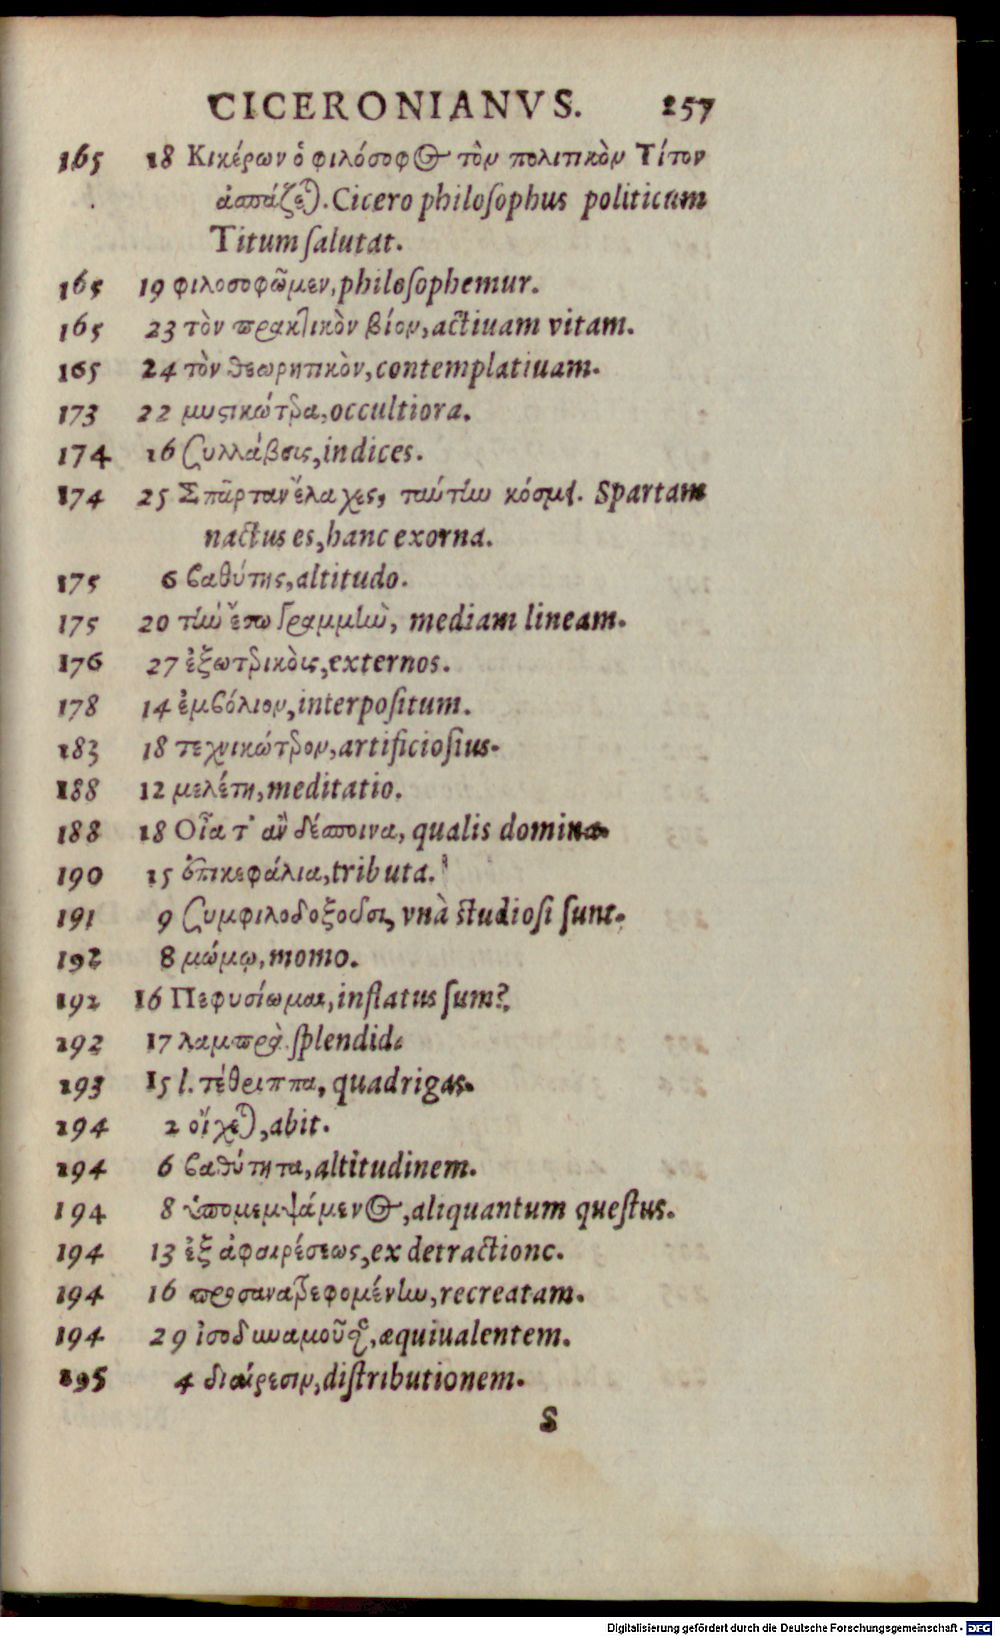 CICERONIANVS. 257
165 18 Κικέρων ὁ φιλόσοφος τὸν πολιτικὸν Τίτον
ἀσπάζεται. Cicero philosophus politicum
Titum salutat.
165 19 φιλοσοφῶμεν, philosophemur.
165 23 τὸν πρακτικὸν βίον, actiuam vitam.
165 24 τὸν θεωρητικὸν, contemplatiuam.
173 22 μυστικώτερα, occultiora.
174 16 Συλλάβεις, indices.
174 25 Σπᾶρταν ἔλαχες, ταύτην κόσμει. Spartam
nactus es, hanc exorna.
175 6 βαθύτης, altitudo.
175 20 τὴν γραμμὴν, mediam lineam.
176 27 ἐξωτερικοὶς, externos.
178 14 ἐμβόλιον, interpositum.
183 18 τεχνικώτερον, artificiosius.
188 12 μελέτη, meditatio.
188 18 Οἷα τ' ἂν δέσποινα, qualis domina.
190 15 ἐπικεφάλια, tributa.
191 9 συμφιλοδοξοῦσι, vnà studiosi sunt.
192 8 μώμῳ, momo.
192 16 Πεφυσίωμαι, inflatus sum?
192 17 λαμπρὰ. splendida
193 15 l. τέθριππα, quadrigas.
194 2 οἴχεται, abit.
194 6 βαθύτητα, altitudinem.
194 8 ὑπομεμψάμενος, aliquantum questus.
194 13 ἐξ ἀφαιρέσεως, ex detractione.
194 16 προσανατρεφομένην, recreatam.
194 29 ἰσοδυναμοῦντα, æquiualentem.
195 4 διαίρεσιν, distributionem.
S
Digitalisierung gefördert durch die Deutsche Forschungsgemeinschaft - DFG